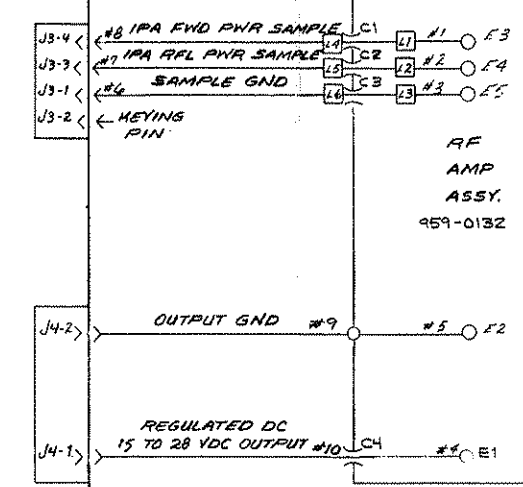 J3-4 #8 IPA FWD PWR SAMPLE L4 C1 L1 #1 E3
J3-3 #7 IPA RFL PWR SAMPLE L5 C2 L2 #2 E4
J3-1 #6 SAMPLE GND L6 C3 L3 #3 E5
J3-2 KEYING
PIN
RF
AMP
ASSY.
959-0132
J4-2 OUTPUT GND #9 #5 E2
REGULATED DC
J4-1 15 TO 28 VDC OUTPUT #10 C4 #4 E1